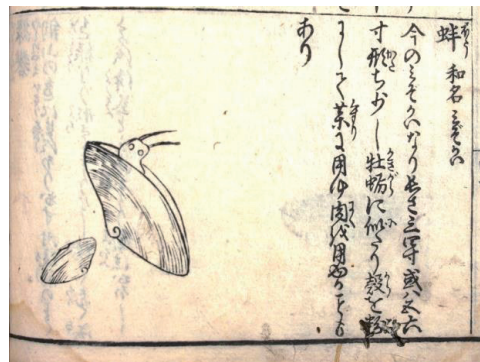 蚌 和名みぞかい
今のみぞかいなり長さ三四寸或ハ五六
寸形ち少し牡蛎に似たり殻を粉
にして薬に用ゆ肉を用ゆることも
あり